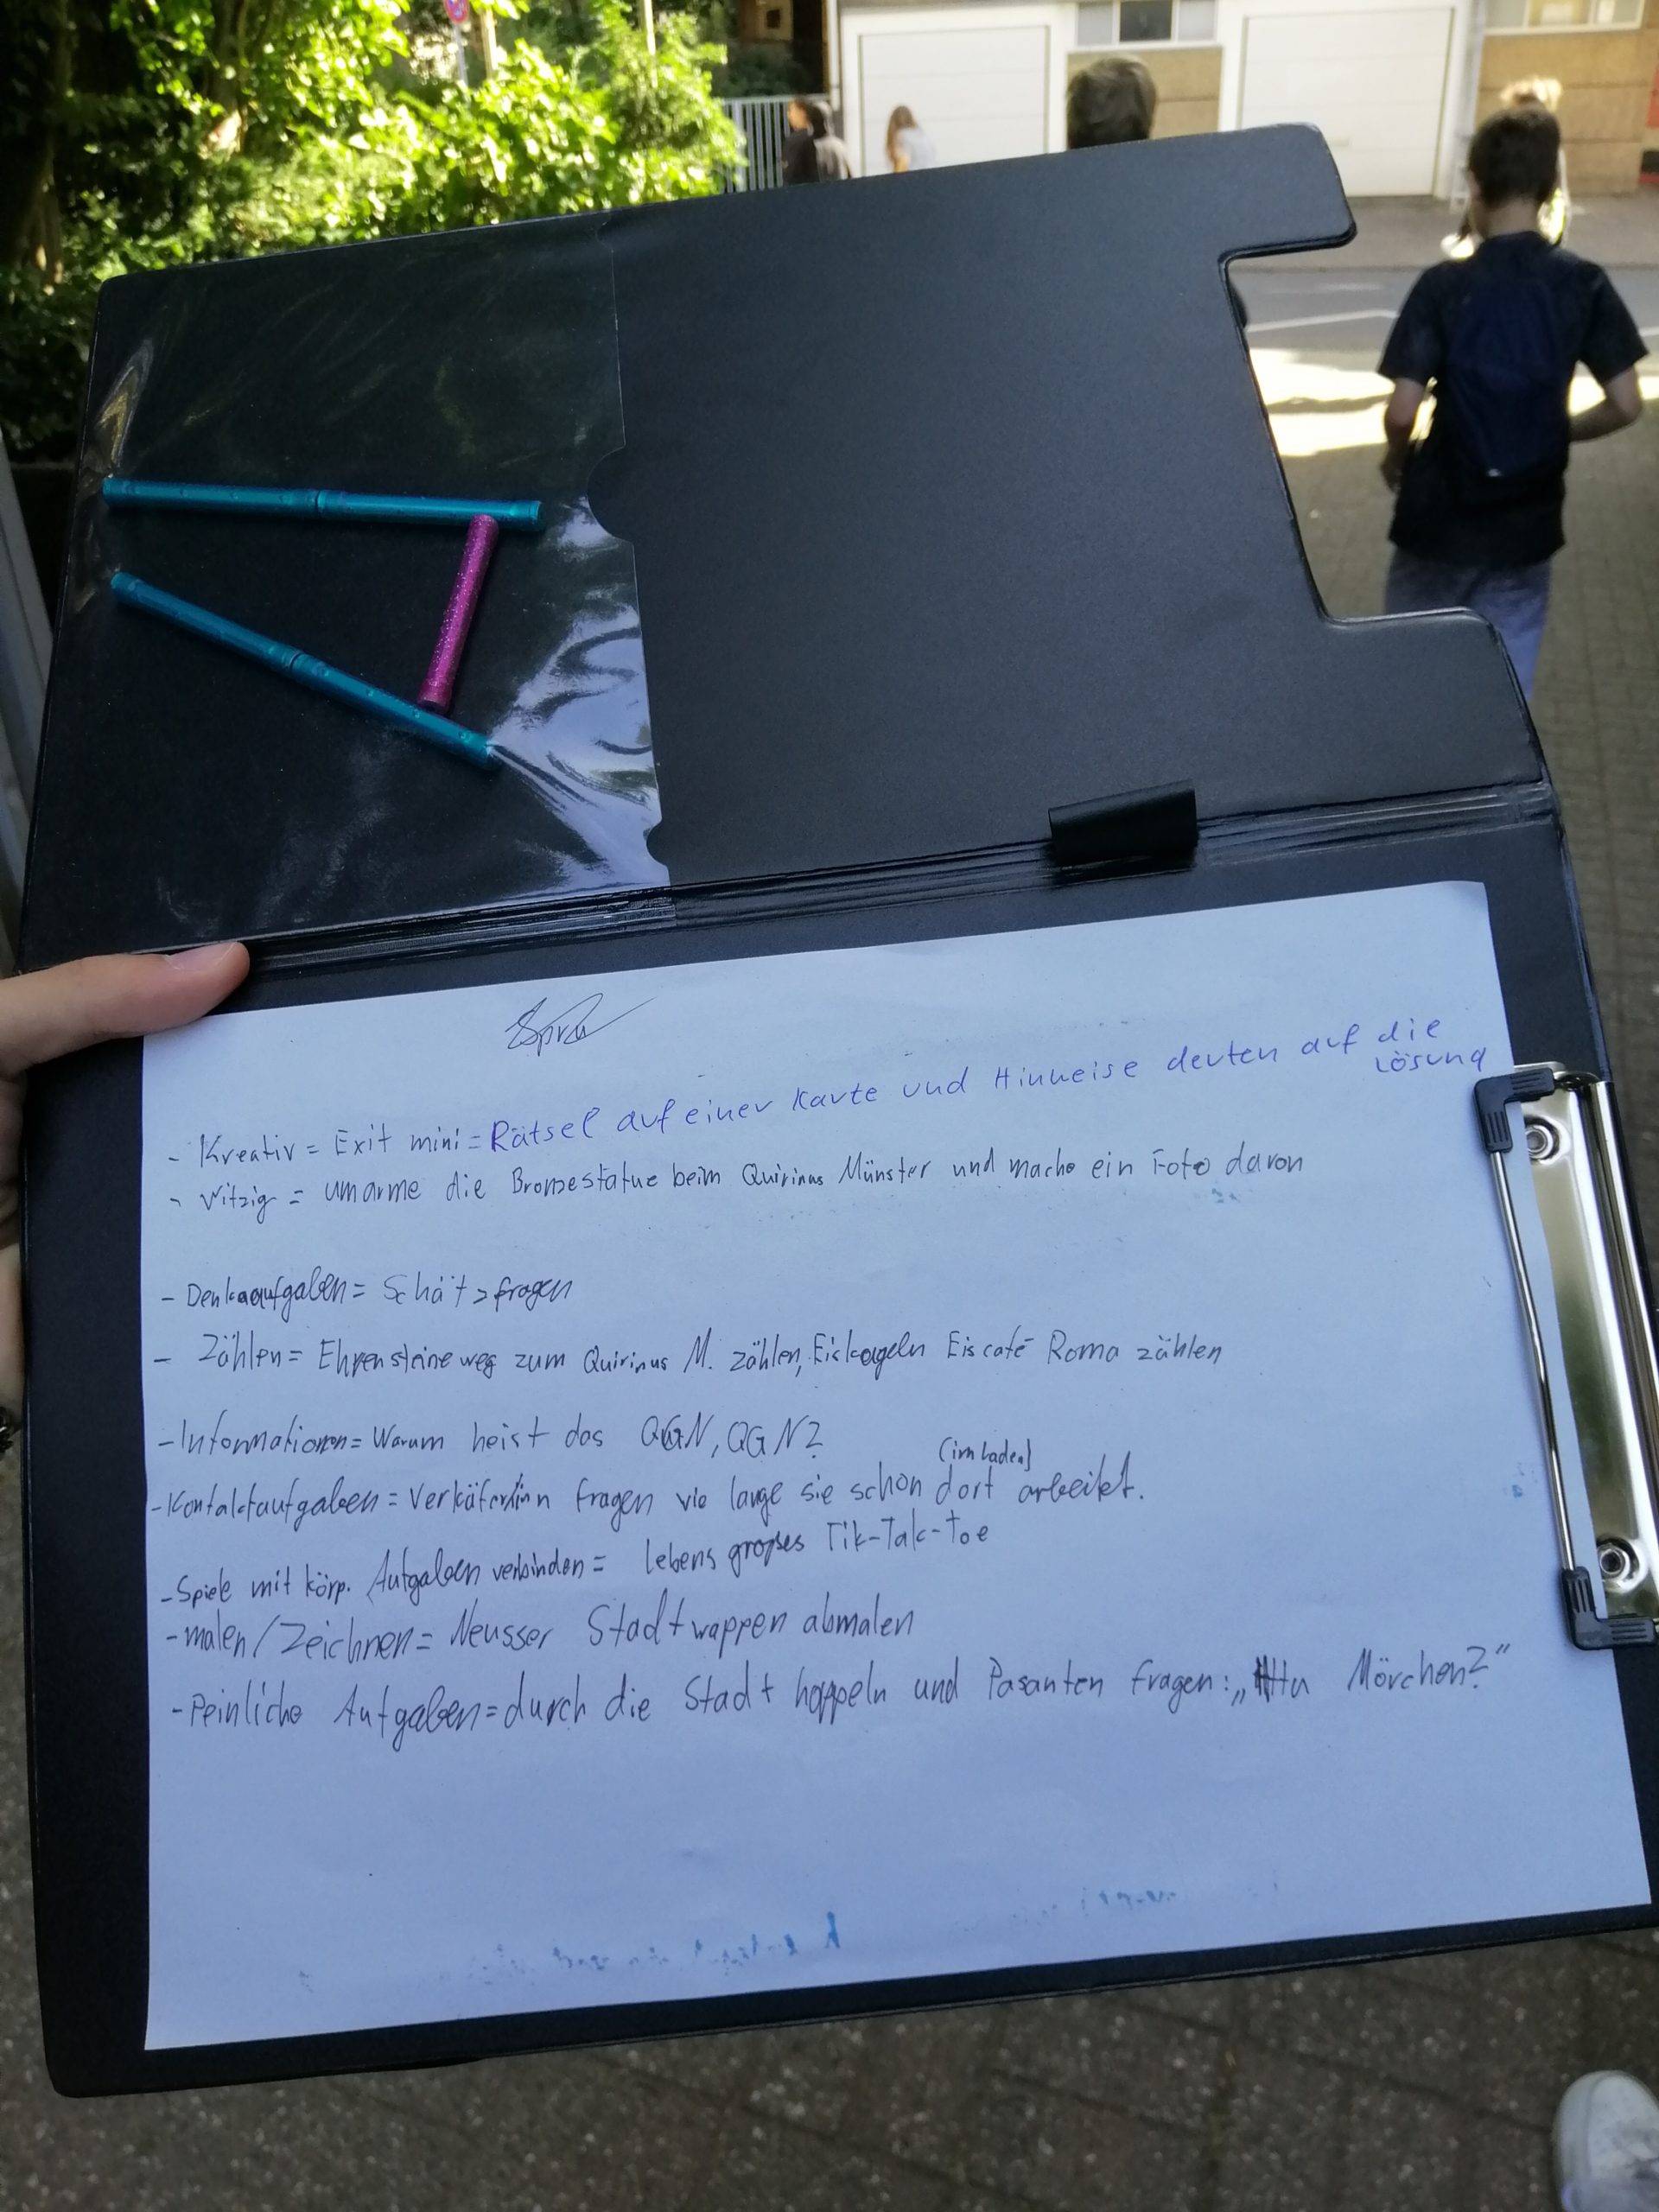 - Kreativ = Exit mini = Rätsel auf einer Karte und Hinweise deuten auf die
Lösung
- Witzig = umarme die Bronzestatue beim Quirinus Münster und mache ein Foto davon
- Denkaufgaben = Schätzfragen
- Zählen = Ehrensteine weg zum Quirinus M. zählen, Eiskugeln Eiscafé Roma zählen
- Informationen = Warum heist das QGN, QGN?
(im Laden)
- Kontaktaufgaben = Verkäferinn fragen wie lange sie schon dort arbeitet.
- Spiele mit körp. Aufgaben verbinden = lebens großes Tik-Tak-Toe
- malen / Zeichnen = Neusser Stadtwappen abmalen
- Peinliche Aufgaben = durch die Stadt hoppeln und Pasanten fragen: „Hu Mörchen?"